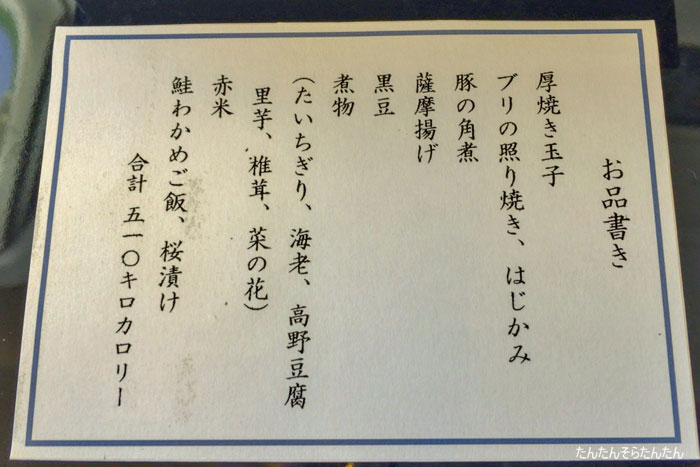 お品書き
厚焼き玉子
ブリの照り焼き、はじかみ
豚の角煮
薩摩揚げ
黒豆
煮物
(たいちぎり、海老、高野豆腐
里芋、椎茸、菜の花)
赤米
鮭わかめご飯、桜漬け
合計 五一〇キロカロリー
たんたんそらたんたん